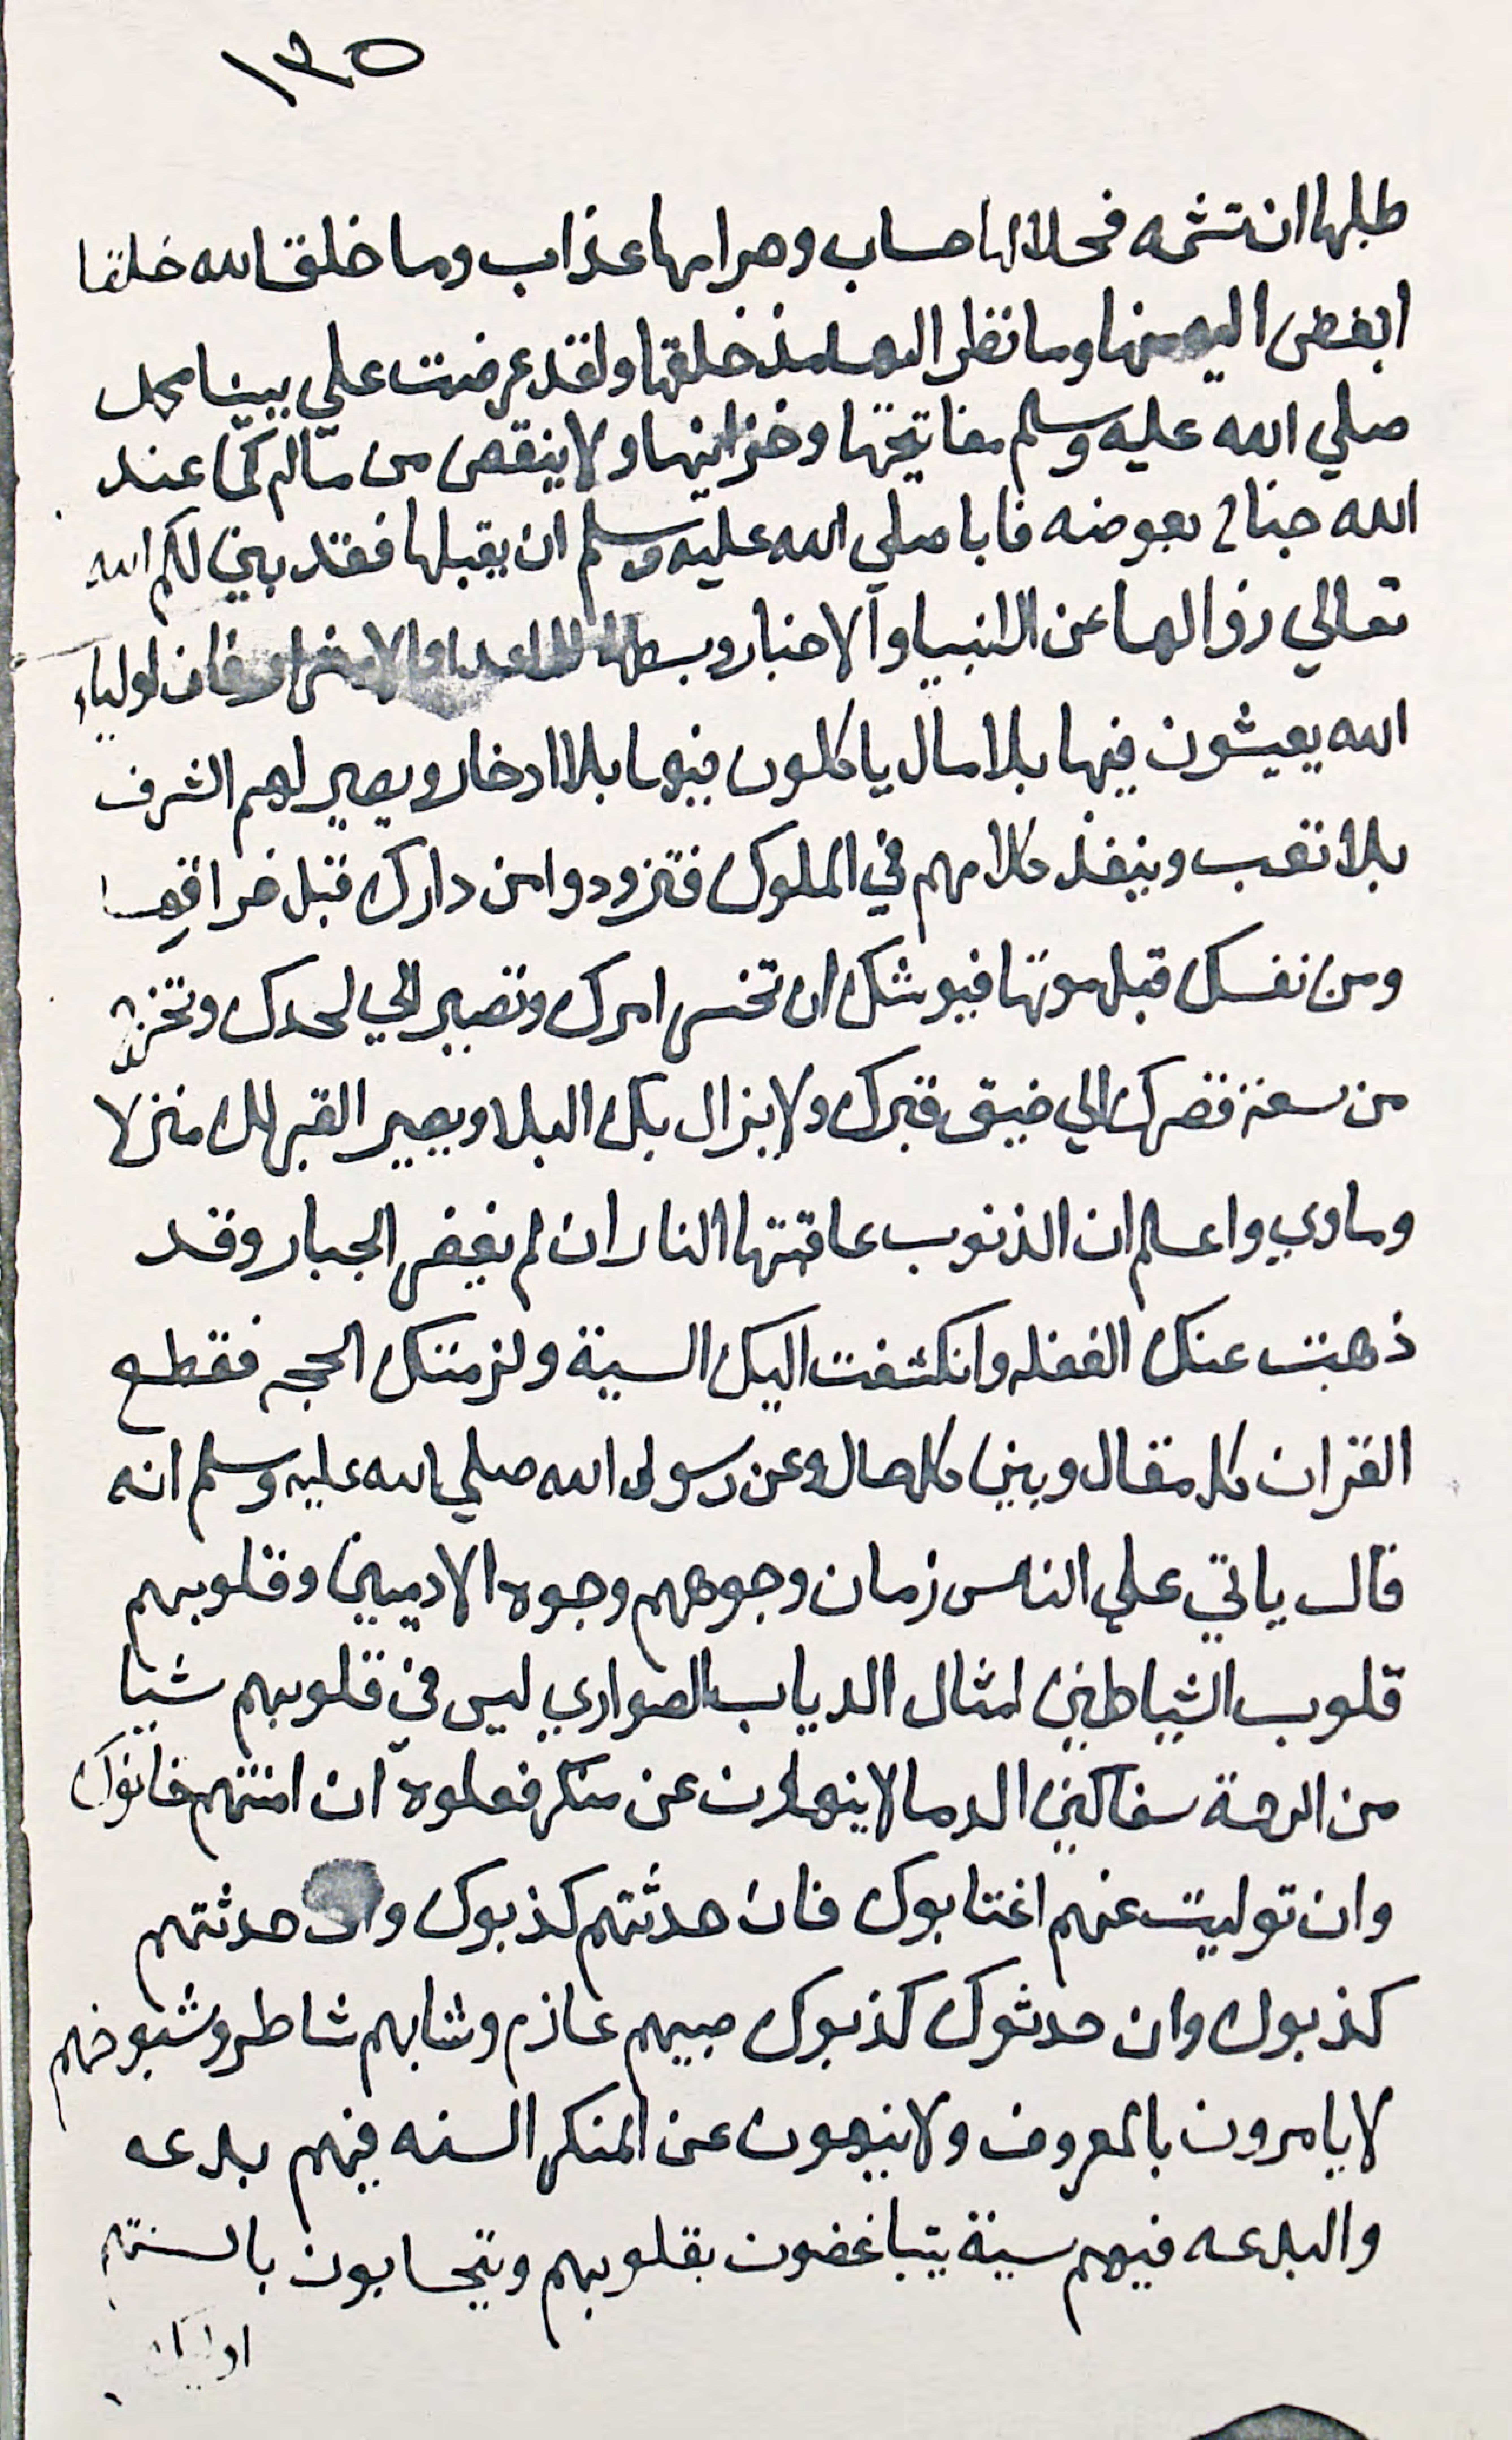 ١٣٥
طلبها ان تشمه فحلالها حساب وحرامها عذاب وما خلق الله خلقا
ابغض اليه منها وما نظر اليها مذ خلقها ولقد عرضت علي نبينا محمد
صلي الله عليه وسلم مفاتيحها وخزاينها ولا ينقص من ماله كما عند
الله جناح بعوضه فابا صلي الله عليه وسلم ان يقبلها فقد بين لكم الله
تعالي زوالها عن الانبيا والاخيار وبسطها للاعدا والاشرار فان اولياء
الله يعيشون فيها بلا مال ياكلون فيها بلا ادخار ويصير لهم الشرف
بلا تعب وينفذ كلامهم في الملوك فتزودوا من دارك قبل فراقها
ومن نفسك قبل موتها فيوشك ان تخس امرك وتصير الي لحدك وتخرج
من سعة قصرك الي ضيق قبرك ولا يزال بك البلا ويصير القبر لك منزلا
وماوي واعلم ان الذنوب عاقبتها النار ان لم يغفر الجبار وقد
ذهبت عنك الغفله وانكشفت اليك السية ولزمتك الحجه فقطع
القران كل مقال وبين كل حال وعن رسول الله صلي الله عليه وسلم انه
قال ياتي علي الناس زمان وجوههم وجوه الادميين وقلوبهم
قلوب الشياطين امثال الدياب الضواري ليس في قلوبهم شيا
من الرحمة سفاكين الدما لا ينهون عن منكر فعلوه ان امنتهم خانوك
وان توليت عنهم اغتابوك فان حدثتهم كذبوك وان حدثتهم
كذبوك وان حدثوك كذبوك صبيهم عازم وشابهم شاطر وشيوخهم
لا يامرون بالمعروف ولا ينهون عن المنكر السنه فيهم بدعه
والبدعه فيهم سنة يتباغضون بقلوبهم ويتحابون بالسنتهم
اوليك